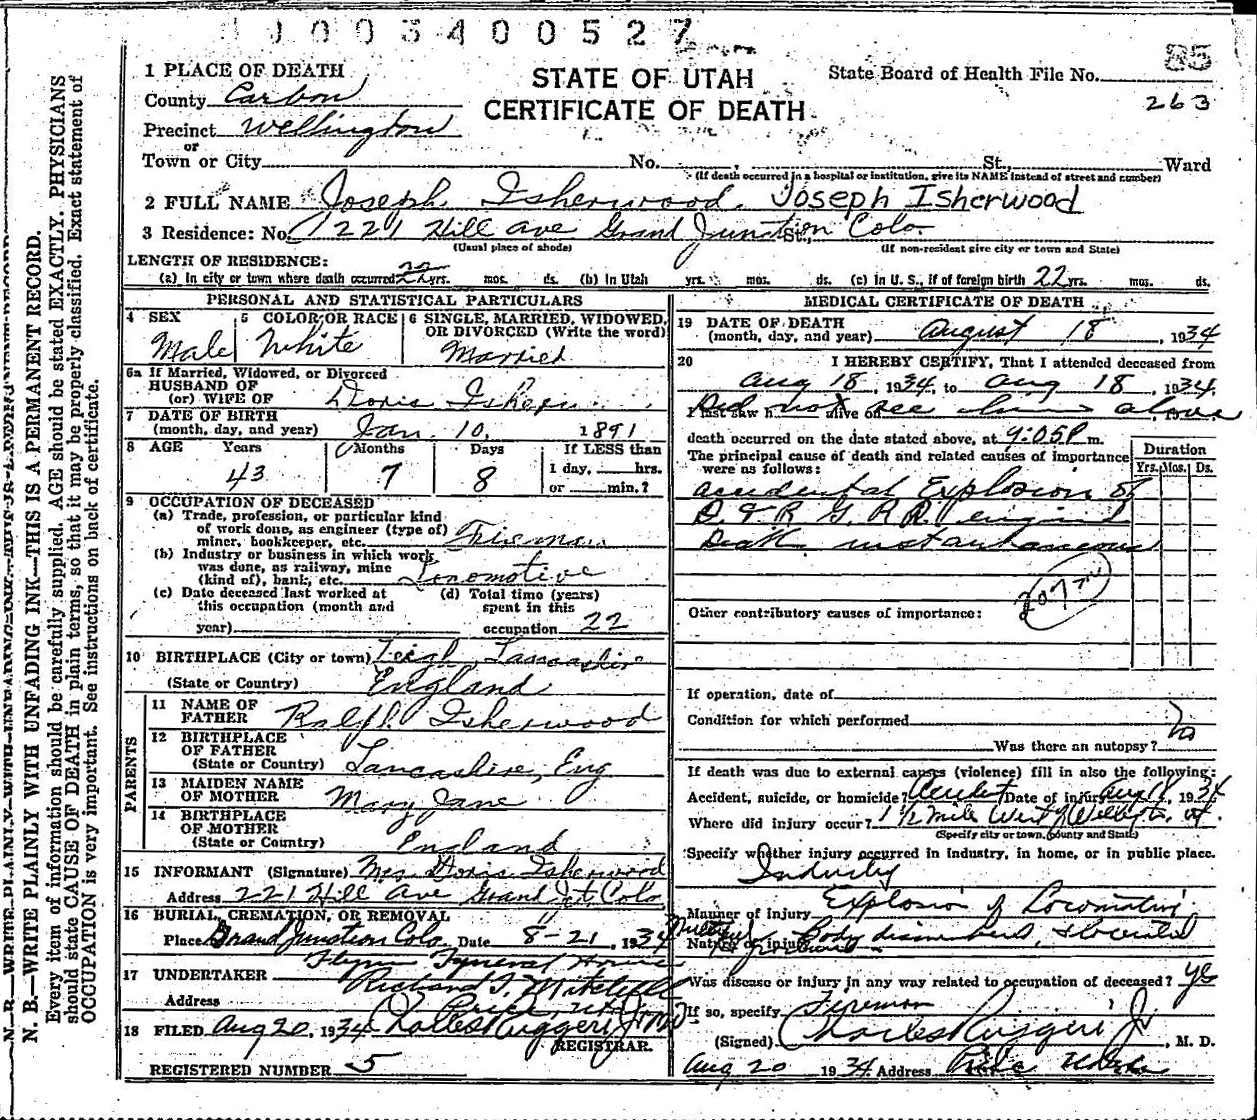 J003400527
1 PLACE OF DEATH
STATE OF UTAH
CERTIFICATE OF DEATH
State Board of Health File No. 85
263
County Carbon
Precinct Wellington
or
Town or City No. , St., Ward
(If death occurred in a hospital or institution, give its NAME instead of street and number)
2 FULL NAME Joseph Isherwood. Joseph Isherwood
3 Residence: No. 1221 Hill Ave Grand Junction St., Colo
(Usual place of abode) (If non-resident give city or town and State)
LENGTH OF RESIDENCE:
(a) In city or town where death occurred 22 yrs. mos. ds. (b) In Utah yrs. mos. ds. (c) In U. S., if of foreign birth 22 yrs. mos. ds.
PERSONAL AND STATISTICAL PARTICULARS
4 SEX Male
5 COLOR OR RACE White
6 SINGLE, MARRIED, WIDOWED, OR DIVORCED (Write the word) Married
6a If Married, Widowed, or Divorced
HUSBAND OF
(or) WIFE OF Doris
7 DATE OF BIRTH
(month, day, and year) Jan. 10, 1891
8 AGE Years Months Days If LESS than
43 7 8 1 day, hrs.
or min.?
9 OCCUPATION OF DECEASED
(a) Trade, profession, or particular kind
of work done, as engineer (type of)
miner, bookkeeper, etc. Fireman
(b) Industry or business in which work
was done, as railway, mine
(kind of), bank, etc. Locomotive
(c) Date deceased last worked at
this occupation (month and
year)
(d) Total time (years)
spent in this
occupation 22
10 BIRTHPLACE (City or town) Leigh Lancashire
(State or Country) England
PARENTS
11 NAME OF
FATHER Ralph Isherwood
12 BIRTHPLACE
OF FATHER
(State or Country) Lancashire, Eng
13 MAIDEN NAME
OF MOTHER Mary Jane
14 BIRTHPLACE
OF MOTHER
(State or Country) England
15 INFORMANT (Signature) Mrs Doris Isherwood
Address 221 Hill Ave Grand Jct, Colo
16 BURIAL, CREMATION, OR REMOVAL
Place Grand Junction Colo Date 8-21, 1934
17 UNDERTAKER Flynn Funeral Home
Richard I. Mitchell
Address Price, Utah
18 FILED Aug 20, 1934 Charles Ruggeri Jr MD
REGISTRAR.
REGISTERED NUMBER 5
MEDICAL CERTIFICATE OF DEATH
19 DATE OF DEATH
(month, day, and year) August 18, 1934
20 I HEREBY CERTIFY, That I attended deceased from
Aug 18, 1934 to Aug 18, 1934
I last saw h alive on , 19
Did not see him alive
death occurred on the date stated above, at 9:05 P m.
The principal cause of death and related causes of importance
were as follows:
Duration
Yrs. Mos. Ds.
Accidental Explosion of
D. & R G. R R. engine
Death instantaneous
Other contributory causes of importance:
If operation, date of
Condition for which performed
Was there an autopsy? No
If death was due to external causes (violence) fill in also the following:
Accident, suicide, or homicide? Accident Date of injury Aug 18, 1934
Where did injury occur? 1 1/2 mile West of Wellington, Ut.
(Specify city or town, county and State)
Specify whether injury occurred in industry, in home, or in public place.
Industry
Manner of injury Explosion of Locomotive
Nature of injury Body dismembered,
Was disease or injury in any way related to occupation of deceased? yes
If so, specify Fireman
(Signed) Charles Ruggeri Jr, M. D.
Aug 20 1934 Address Price Utah
N. B.—WRITE PLAINLY WITH UNFADING INK—THIS IS A PERMANENT RECORD.
Every item of information should be carefully supplied. AGE should be stated EXACTLY. PHYSICIANS
should state CAUSE OF DEATH in plain terms, so that it may be properly classified. Exact statement of
OCCUPATION is very important. See instructions on back of certificate.